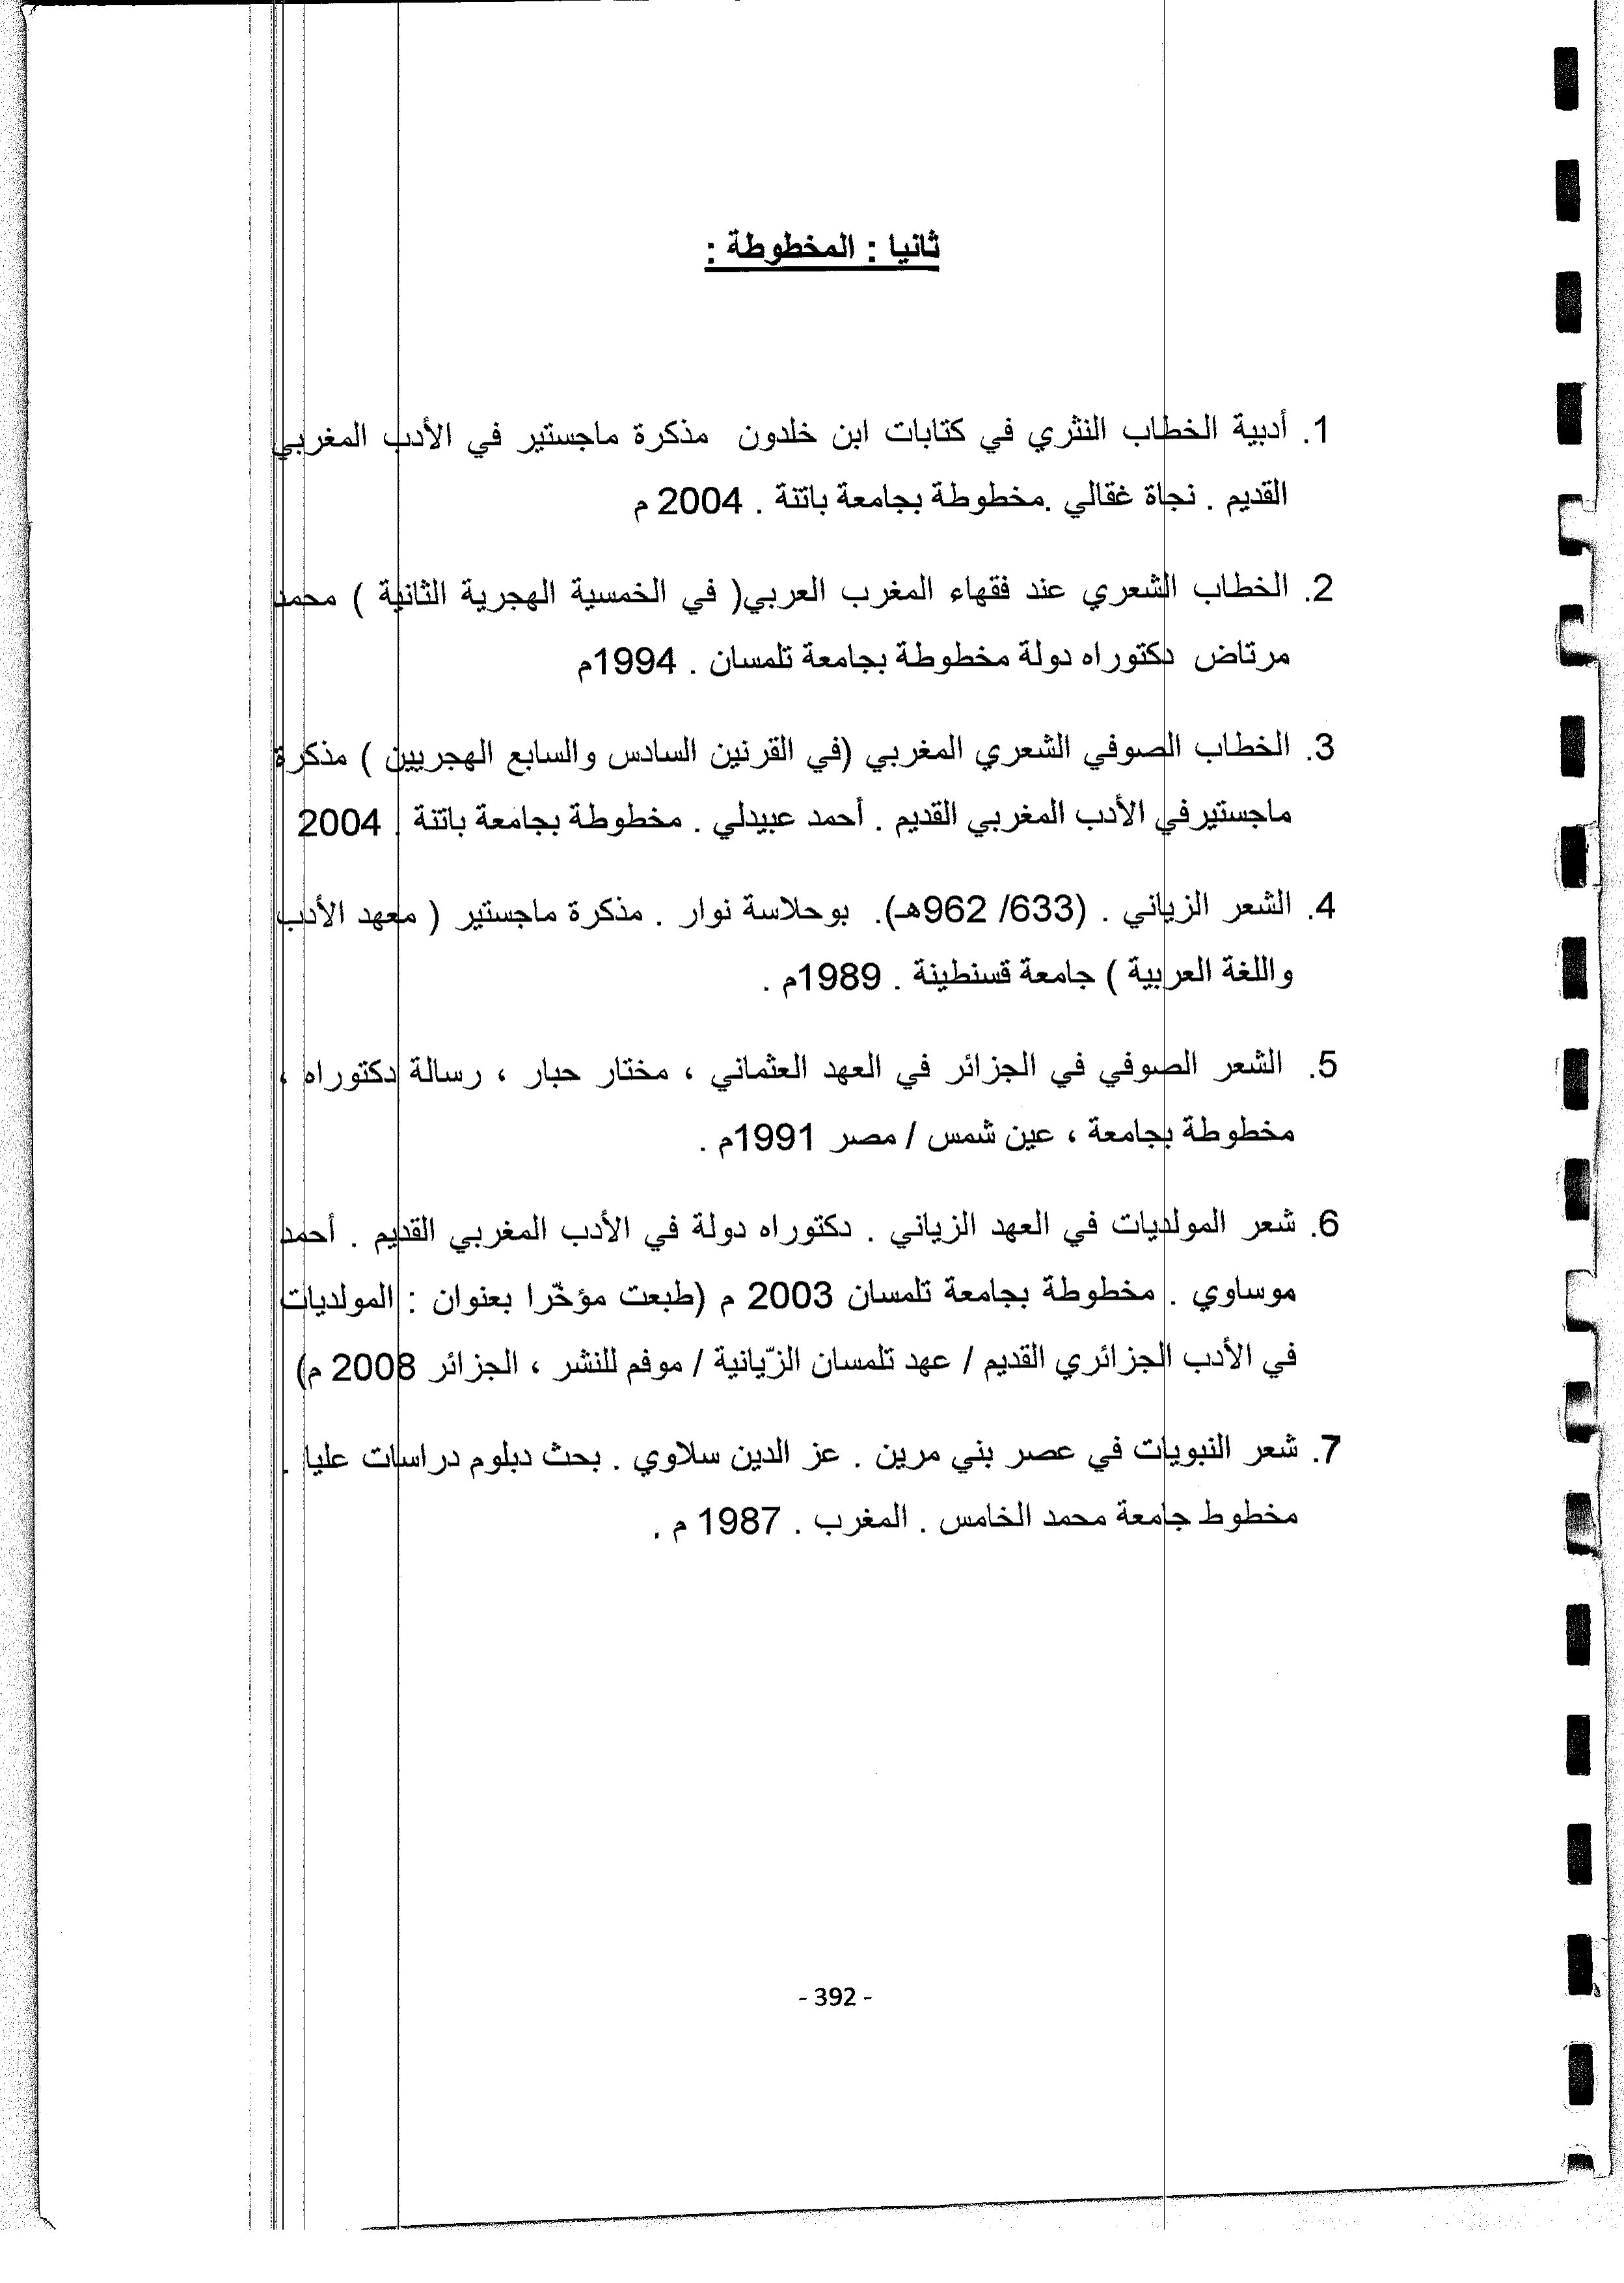 ثانيا : المخطوطة :
1. أدبية الخطاب النثري في كتابات ابن خلدون مذكرة ماجستير في الأدب المغربي
القديم . نجاة غقالي .مخطوطة بجامعة باتنة . 2004 م
2. الخطاب الشعري عند فقهاء المغرب العربي( في الخمسية الهجرية الثانية ) محمد
مرتاض دكتوراه دولة مخطوطة بجامعة تلمسان . 1994م
3. الخطاب الصوفي الشعري المغربي (في القرنين السادس والسابع الهجريين ) مذكرة
ماجستيرفي الأدب المغربي القديم . أحمد عبيدلي . مخطوطة بجامعة باتنة . 2004
4. الشعر الزياني . (633/ 962هـ). بوحلاسة نوار . مذكرة ماجستير ( معهد الأدب
واللغة العربية ) جامعة قسنطينة . 1989م .
5. الشعر الصوفي في الجزائر في العهد العثماني ، مختار حبار ، رسالة دكتوراه ،
مخطوطة بجامعة ، عين شمس / مصر 1991م .
6. شعر المولديات في العهد الزياني . دكتوراه دولة في الأدب المغربي القديم . أحمد
موساوي . مخطوطة بجامعة تلمسان 2003 م (طبعت مؤخّرا بعنوان : المولديات
في الأدب الجزائري القديم / عهد تلمسان الزّيانية / موفم للنشر ، الجزائر 2008 م)
7. شعر النبويات في عصر بني مرين . عز الدين سلاوي . بحث دبلوم دراسات عليا .
مخطوط جامعة محمد الخامس . المغرب . 1987 م .
- 392 -